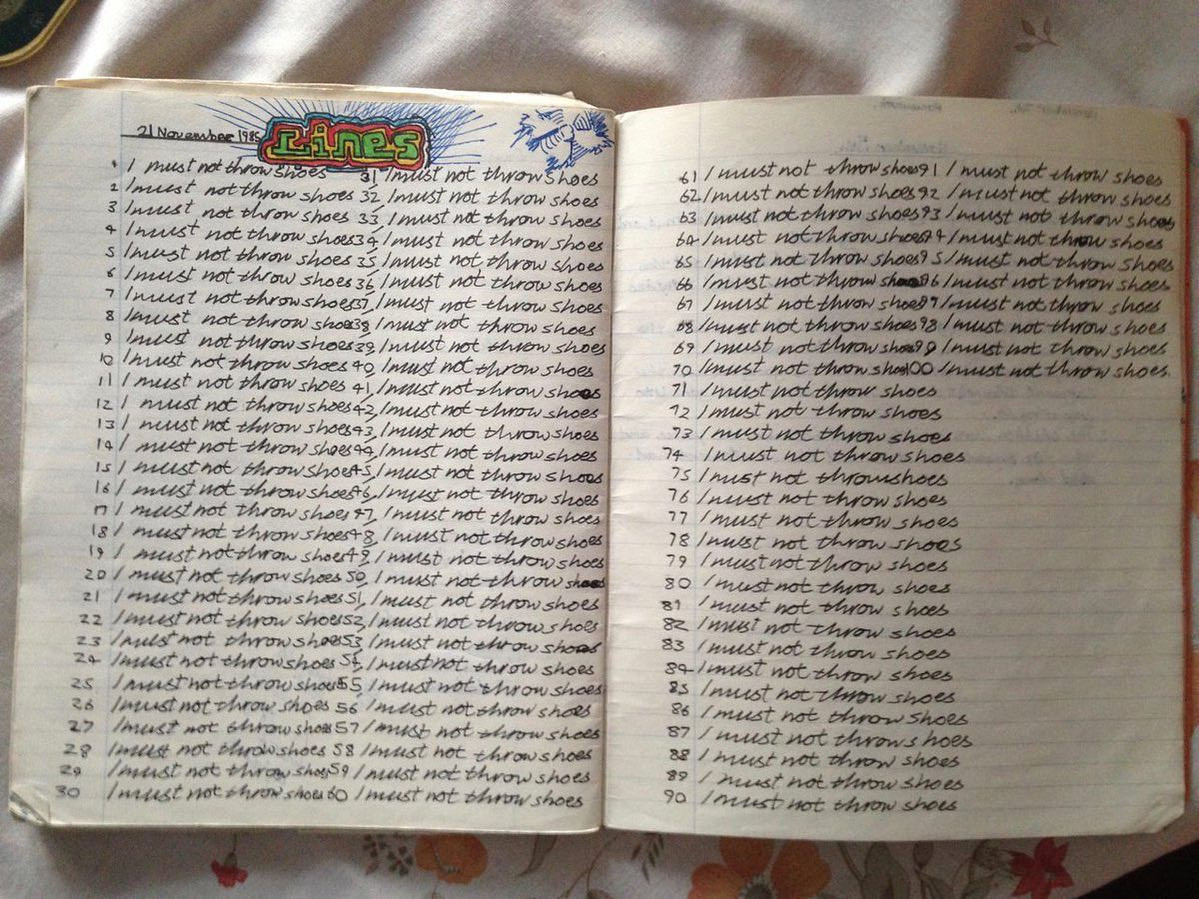 21 November 1985
Lines
1 I must not throw shoes
2 I must not throw shoes
3 I must not throw shoes
4 I must not throw shoes
5 I must not throw shoes
6 I must not throw shoes
7 I must not throw shoes
8 I must not throw shoes
9 I must not throw shoes
10 I must not throw shoes
11 I must not throw shoes
12 I must not throw shoes
13 I must not throw shoes
14 I must not throw shoes
15 I must not throw shoes
16 I must not throw shoes
17 I must not throw shoes
18 I must not throw shoes
19 I must not throw shoes
20 I must not throw shoes
21 I must not throw shoes
22 I must not throw shoes
23 I must not throw shoes
24 I must not throw shoes
25 I must not throw shoes
26 I must not throw shoes
27 I must not throw shoes
28 I must not throw shoes
29 I must not throw shoes
30 I must not throw shoes
31 I must not throw shoes
32 I must not throw shoes
33 I must not throw shoes
34 I must not throw shoes
35 I must not throw shoes
36 I must not throw shoes
37 I must not throw shoes
38 I must not throw shoes
39 I must not throw shoes
40 I must not throw shoes
41 I must not throw shoes
42 I must not throw shoes
43 I must not throw shoes
44 I must not throw shoes
45 I must not throw shoes
46 I must not throw shoes
47 I must not throw shoes
48 I must not throw shoes
49 I must not throw shoes
50 I must not throw shoes
51 I must not throw shoes
52 I must not throw shoes
53 I must not throw shoes
54 I must not throw shoes
55 I must not throw shoes
56 I must not throw shoes
57 I must not throw shoes
58 I must not throw shoes
59 I must not throw shoes
60 I must not throw shoes
61 I must not throw shoes
62 I must not throw shoes
63 I must not throw shoes
64 I must not throw shoes
65 I must not throw shoes
66 I must not throw shoes
67 I must not throw shoes
68 I must not throw shoes
69 I must not throw shoes
70 I must not throw shoes
71 I must not throw shoes
72 I must not throw shoes
73 I must not throw shoes
74 I must not throw shoes
75 I must not throw shoes
76 I must not throw shoes
77 I must not throw shoes
78 I must not throw shoes
79 I must not throw shoes
80 I must not throw shoes
81 I must not throw shoes
82 I must not throw shoes
83 I must not throw shoes
84 I must not throw shoes
85 I must not throw shoes
86 I must not throw shoes
87 I must not throw shoes
88 I must not throw shoes
89 I must not throw shoes
90 I must not throw shoes
91 I must not throw shoes
92 I must not throw shoes
93 I must not throw shoes
94 I must not throw shoes
95 I must not throw shoes
96 I must not throw shoes
97 I must not throw shoes
98 I must not throw shoes
99 I must not throw shoes
100 I must not throw shoes